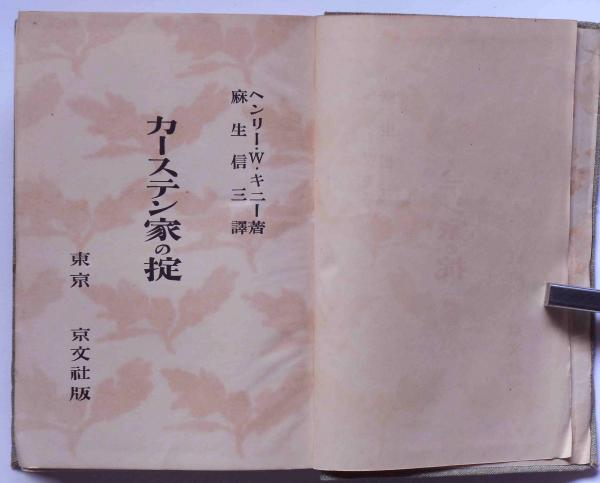 ヘンリー・W・キニー著
麻生信三譯
カーステン家の掟
東京 京文社版